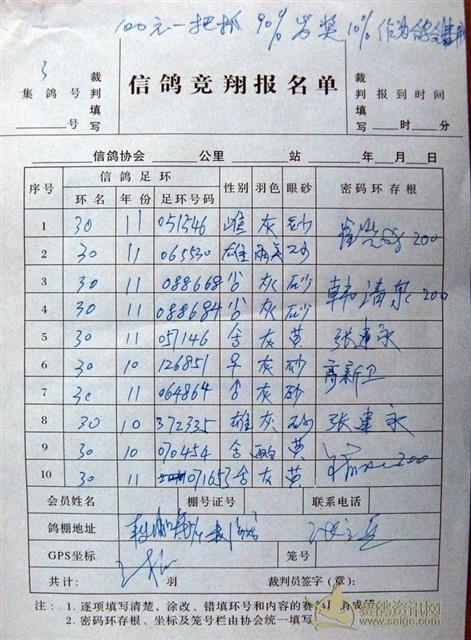 100元一把抓 90%发奖 10%作为
3
裁判填写
集鸽号
号
信鸽竞翔报名单
裁判填写
报到时间
时 分
信鸽协会 公里 站 年 月 日
序号 信鸽足环 性别 羽色 眼砂 密码环存根
环名 年份 足环号码
1 30 11 051546 雌 灰 砂
2 30 11 065530 雄 雨 200
3 30 11 088668 灰 砂 韩清泉 200
4 30 11 088684 灰 砂
5 30 11 057146 灰 黄 张建永
6 30 10 126851 灰 砂 高新卫
7 30 11 064864 灰 砂
8 30 10 372335 雄 灰 砂 张建永
9 30 10 070454 黄
10 30 11 071657 灰 黄 200
会员姓名 棚号证号 联系电话
鸽棚地址
GPS坐标 笼号
共计: 羽 裁判员签字(章):
注: 1. 逐项填写清楚,涂改、错填环号和内容的赛
2. 密码环存根、坐标及笼号栏由协会统一填写
赛鸽资讯网
www.saige.com